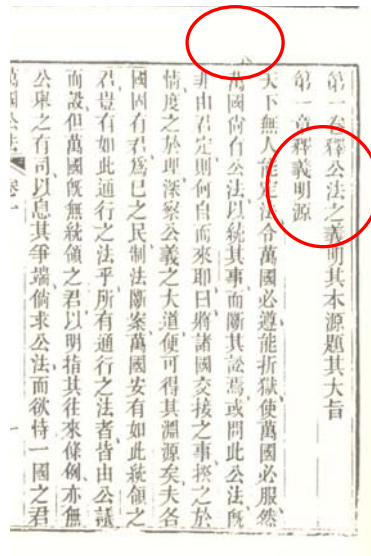 第一卷釋公法之義明其本源題其大旨
第一章釋義明源
天下無人能定法令萬國必遵能折獄使萬國必服然
萬國尚有公法以統其事而斷其訟焉或問此公法旣
非由君定則何自而來耶曰將諸國交接之事揆之於
情度之於理深察公義之大道便可得其淵源矣夫各
國固有君爲己之民制法斷案萬國安有如此統領之
君豈有如此通行之法乎所有通行之法者皆由公議
而設但萬國旣無統領之君以明指其往來條例亦無
公舉之有司以息其爭端倘求公法而欲恃一國之君
萬國公法 卷一 一